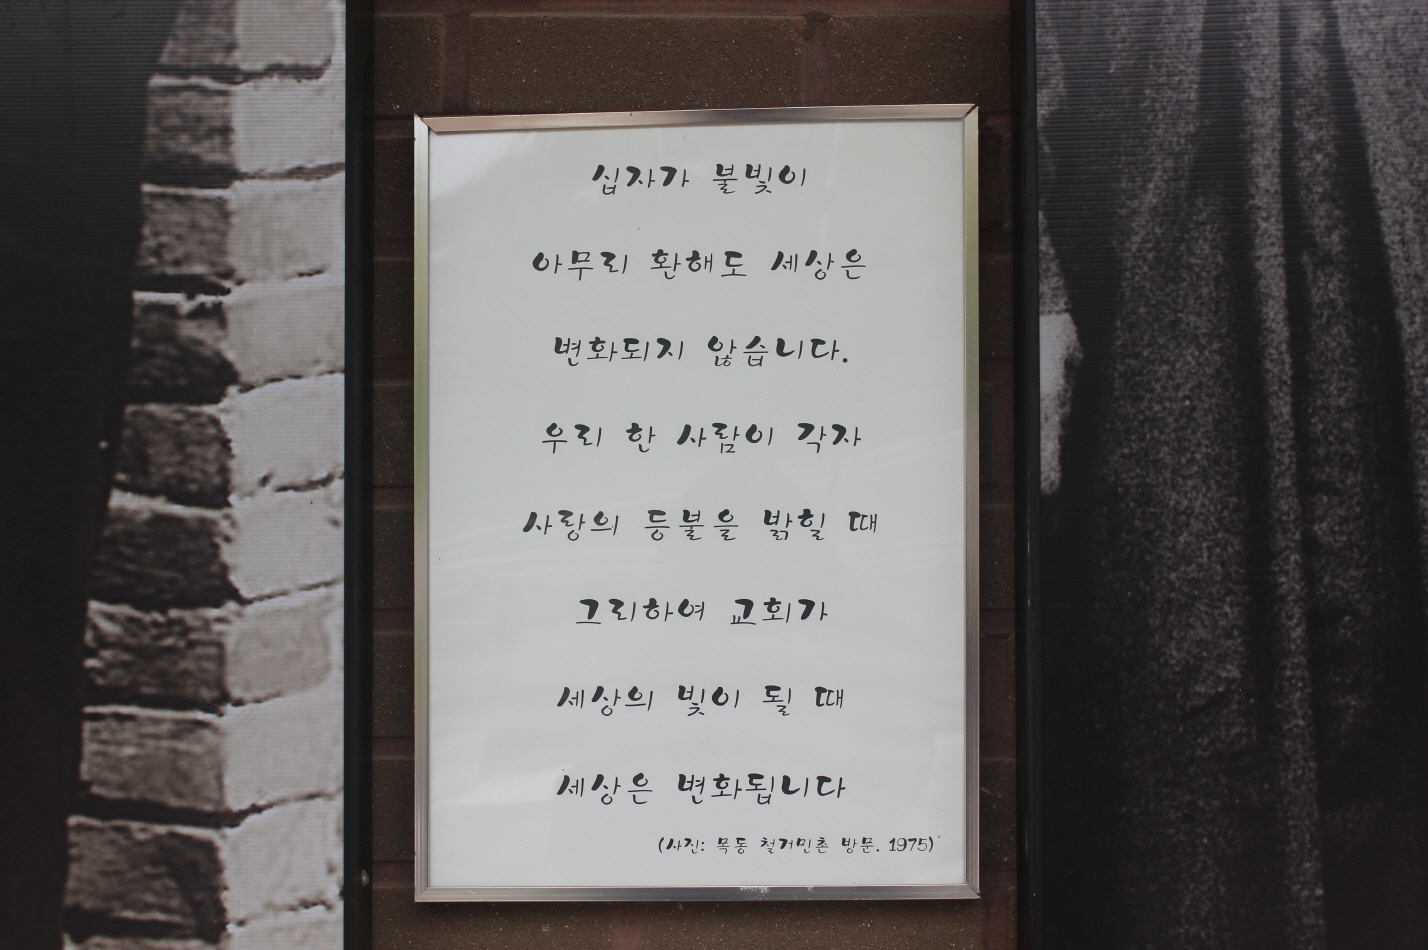 십자가 불빛이
아무리 환해도 세상은
변화되지 않습니다.
우리 한 사람이 각자
사랑의 등불을 밝힐 때
그리하여 교회가
세상의 빛이 될 때
세상은 변화됩니다
(사진: 목동 철거민촌 방문. 1975)